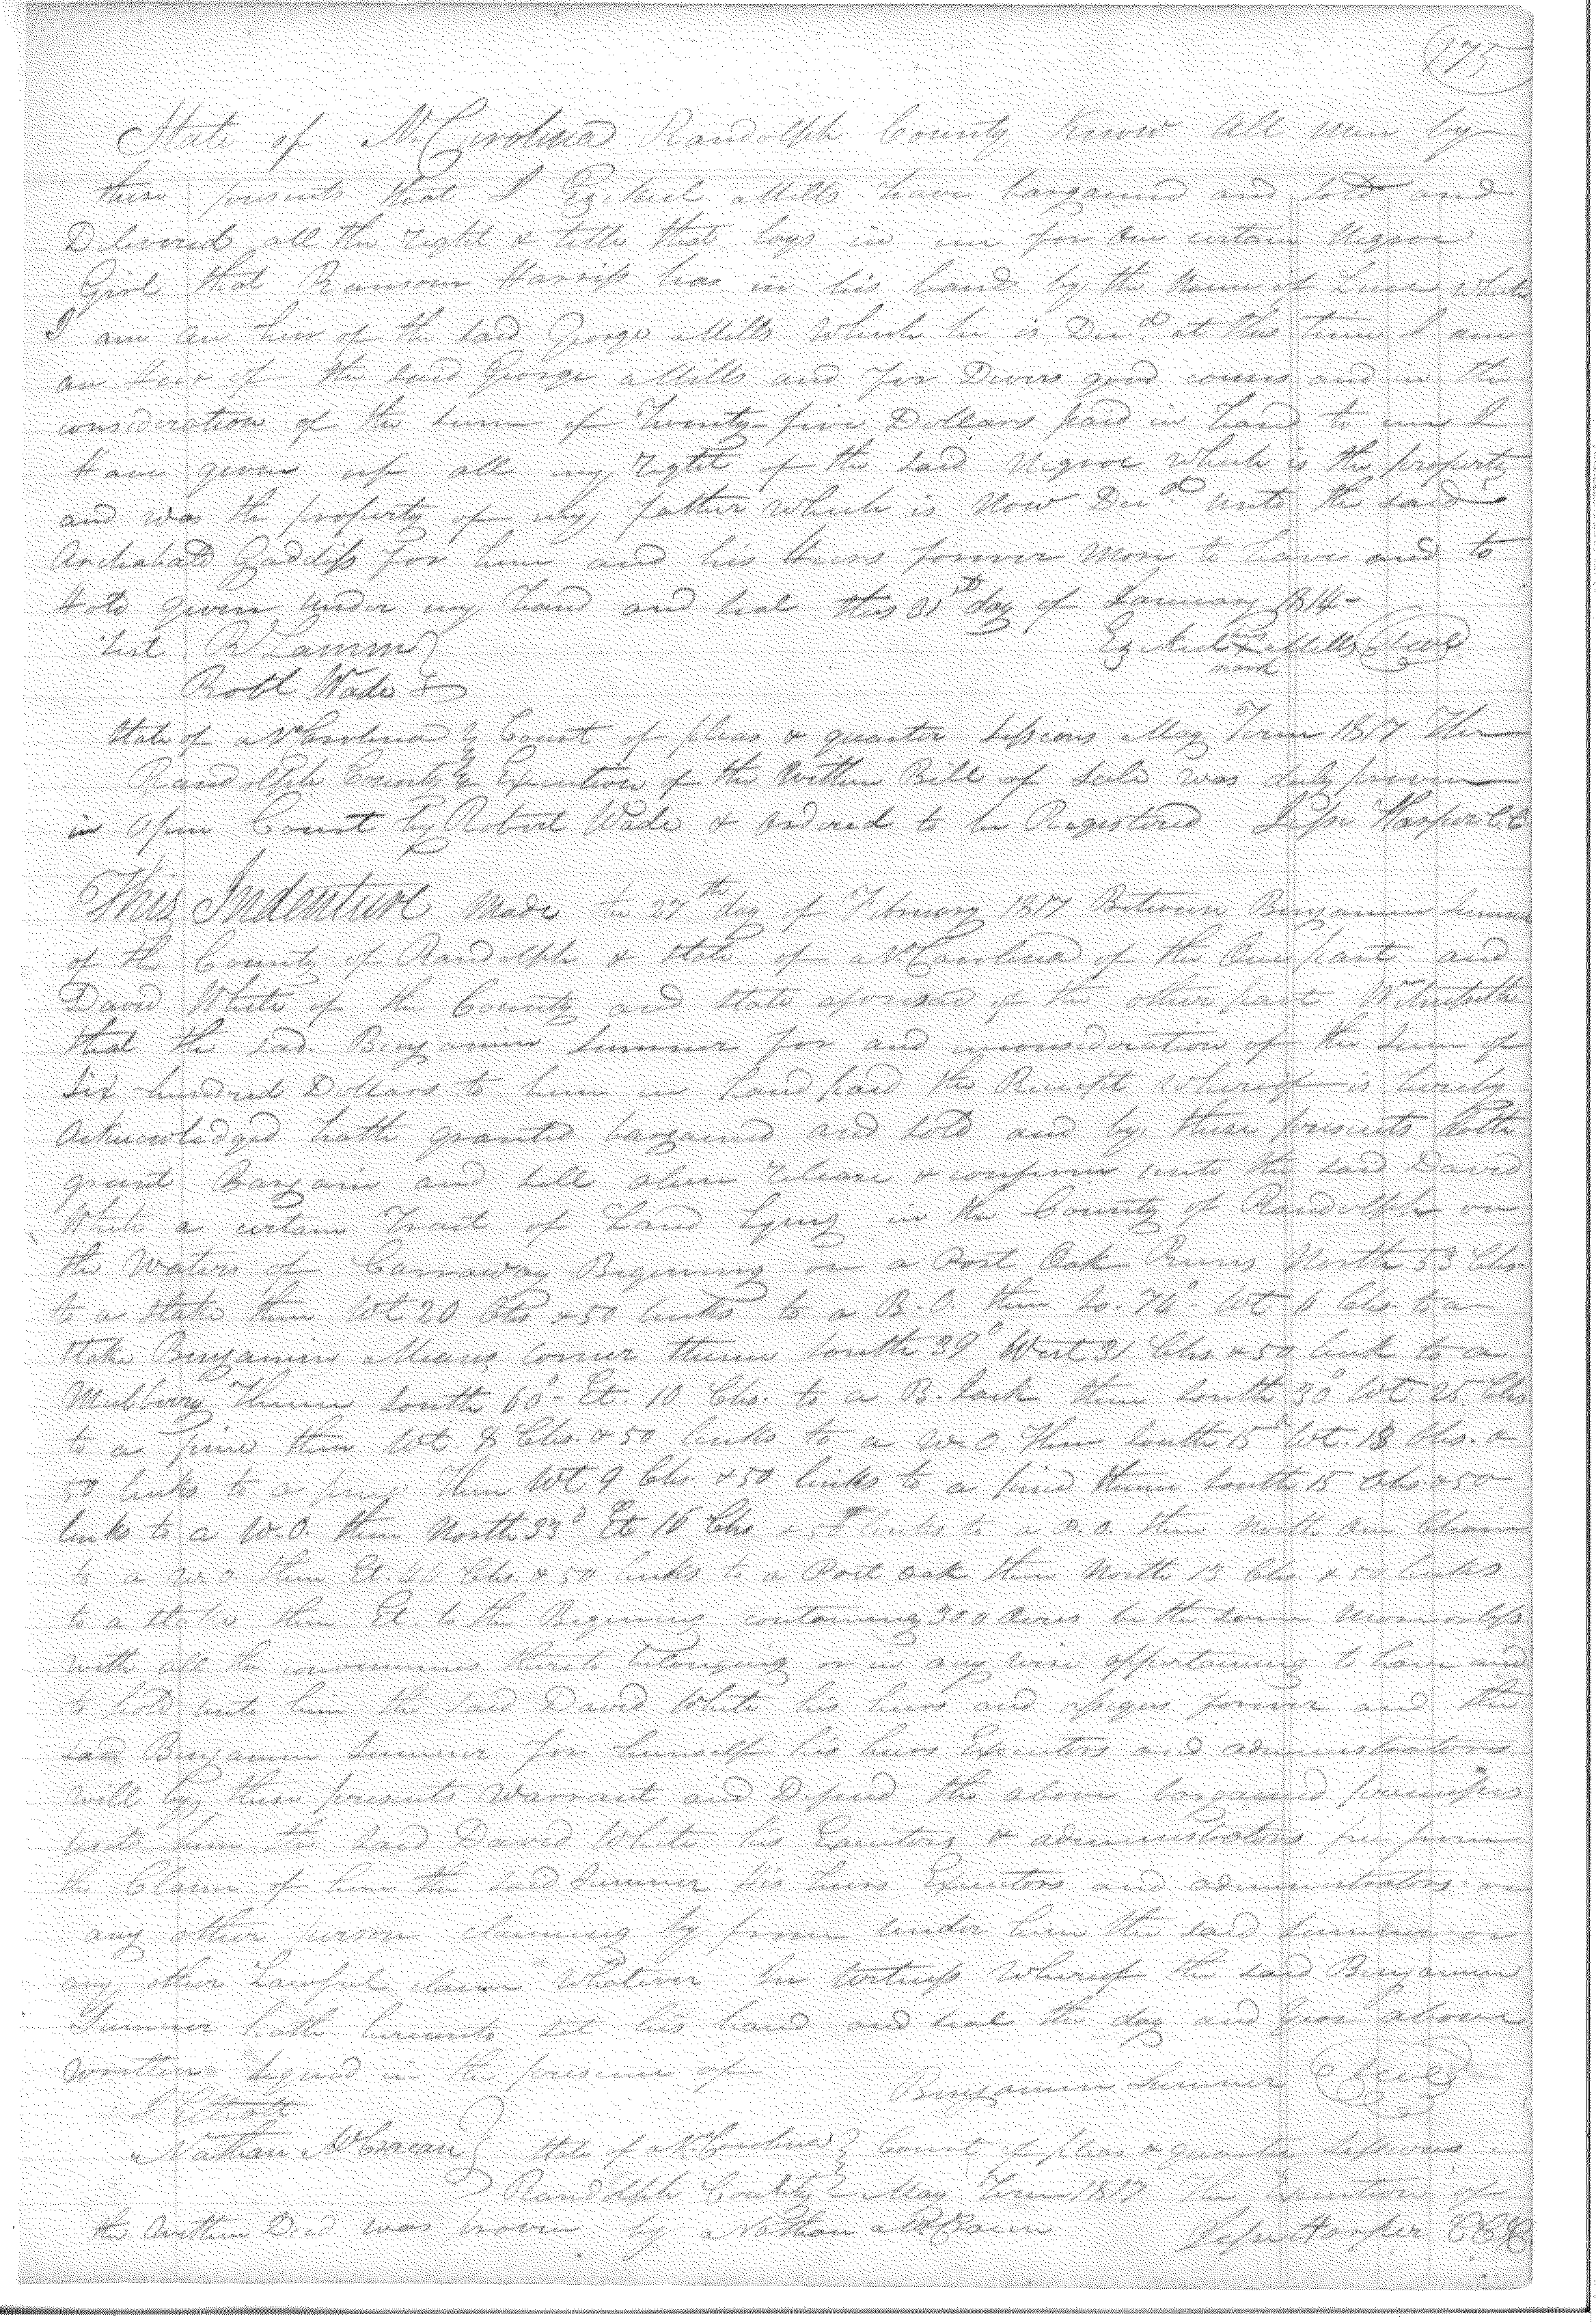 175
State of N. Carolina Randolph County Know all men by
these presents that I Ezekiel Mills have bargained and sold and
Delivered all the right & title that lays in me for one certain Negroe
Girl that Ransom Harriss has in his hands by the Name of Luce which
I am an heir of the said George Mills which he is Decd at this time I am
an Heir of the said George Mills and for Divers good couses and in the
consideration of the sum of Twenty-five Dollars paid in hand to me I
Have given up all my right of the said Negroe which is the property
and was the property of my father which is Now Decd unto the said
Archabald Gaddiss for him and his Heirs forever More to have and to
Hold given under my hand and seal this 31st day of January 1814-
Test R Lamm
Ezekiel X Mills Seal
mark
Robt Wade
State of N Carolina Court of pleas & quarter Sessions May Term 1817 The
Randolph County Execution of the within Bill of sale was duly proven
in open Court by Robert Wade & ordered to be Registered Jesse Harper C.C
This Indenture Made the 27th day of February 1817 Between Benjamin Sumner
of the County of Randolph & State of N Carolina of the One part and
David White of the County and State aforesaid of the other part Witnesseth
that the said Benjamin Sumner for and inconsideration of the Sum of
Six hundred Dollars to him in hand paid the Receipt whereof is hereby
acknowledged hath granted bargained and sold and by these presents doth
grant Bargain and sell alien release & confirm unto the said David
White a certain Tract of Land Lying in the County of Randolph on
the Waters of Carraway Begining on a Post Oak Runs North 53 Chs
to a Stake then Wt 20 Chs & 50 links to a B.O. then So. 74° Wt 11 Chs to a
Stake Benjamin Means Corner thence South 39° West 31 Chs. & 50 link to a
Mulberry Thence South 60° Et. 10 Chs. to a B. Jack then South 30° Wt 25 Chs
to a pine then Wt 8 Chs. & 50 links to a W.O Then South 15° Wt. 18 Chs. &
50 links to a pine Then Wt 9 Chs & 50 links to a pine thence South 15 Chs & 50
links to a W.O. then North 33° Et 16 Chs 50 links to a P.O. then North One Chain
to a W.O then Et 44 Chs. & 50 links to a Post oak then North 13 Chs & 50 links
to a Stake then Et to the Begining containing 300 acres be the same More or less
with all the conveniences thereto belonging or in any wise appertaining to have and
to hold unto him the said David White his heirs and assigns forever and the
said Benjamin Sumner for himself his heirs Executors and administrators
will by these presents Warrant and Defend the above bargained premises
unto him the said David White his Executors & administrators free from
the Claim of him the said Sumner His heirs Executors and administrators or
any other person claiming by from under him the said Sumner or
any other Lawful claim Whatever In Witness Whereof the said Benjamin
Sumner hath hereunto set his hand and seal the day and year above
written Signed in the presence of
Benjamin Sumner Seal
Nathan
State of N. Carolina Court of pleas & quarter Sessions
Randolph County May Term 1817 The Execution of
the within Deed was proven by Nathan
Jesse Harper CCC